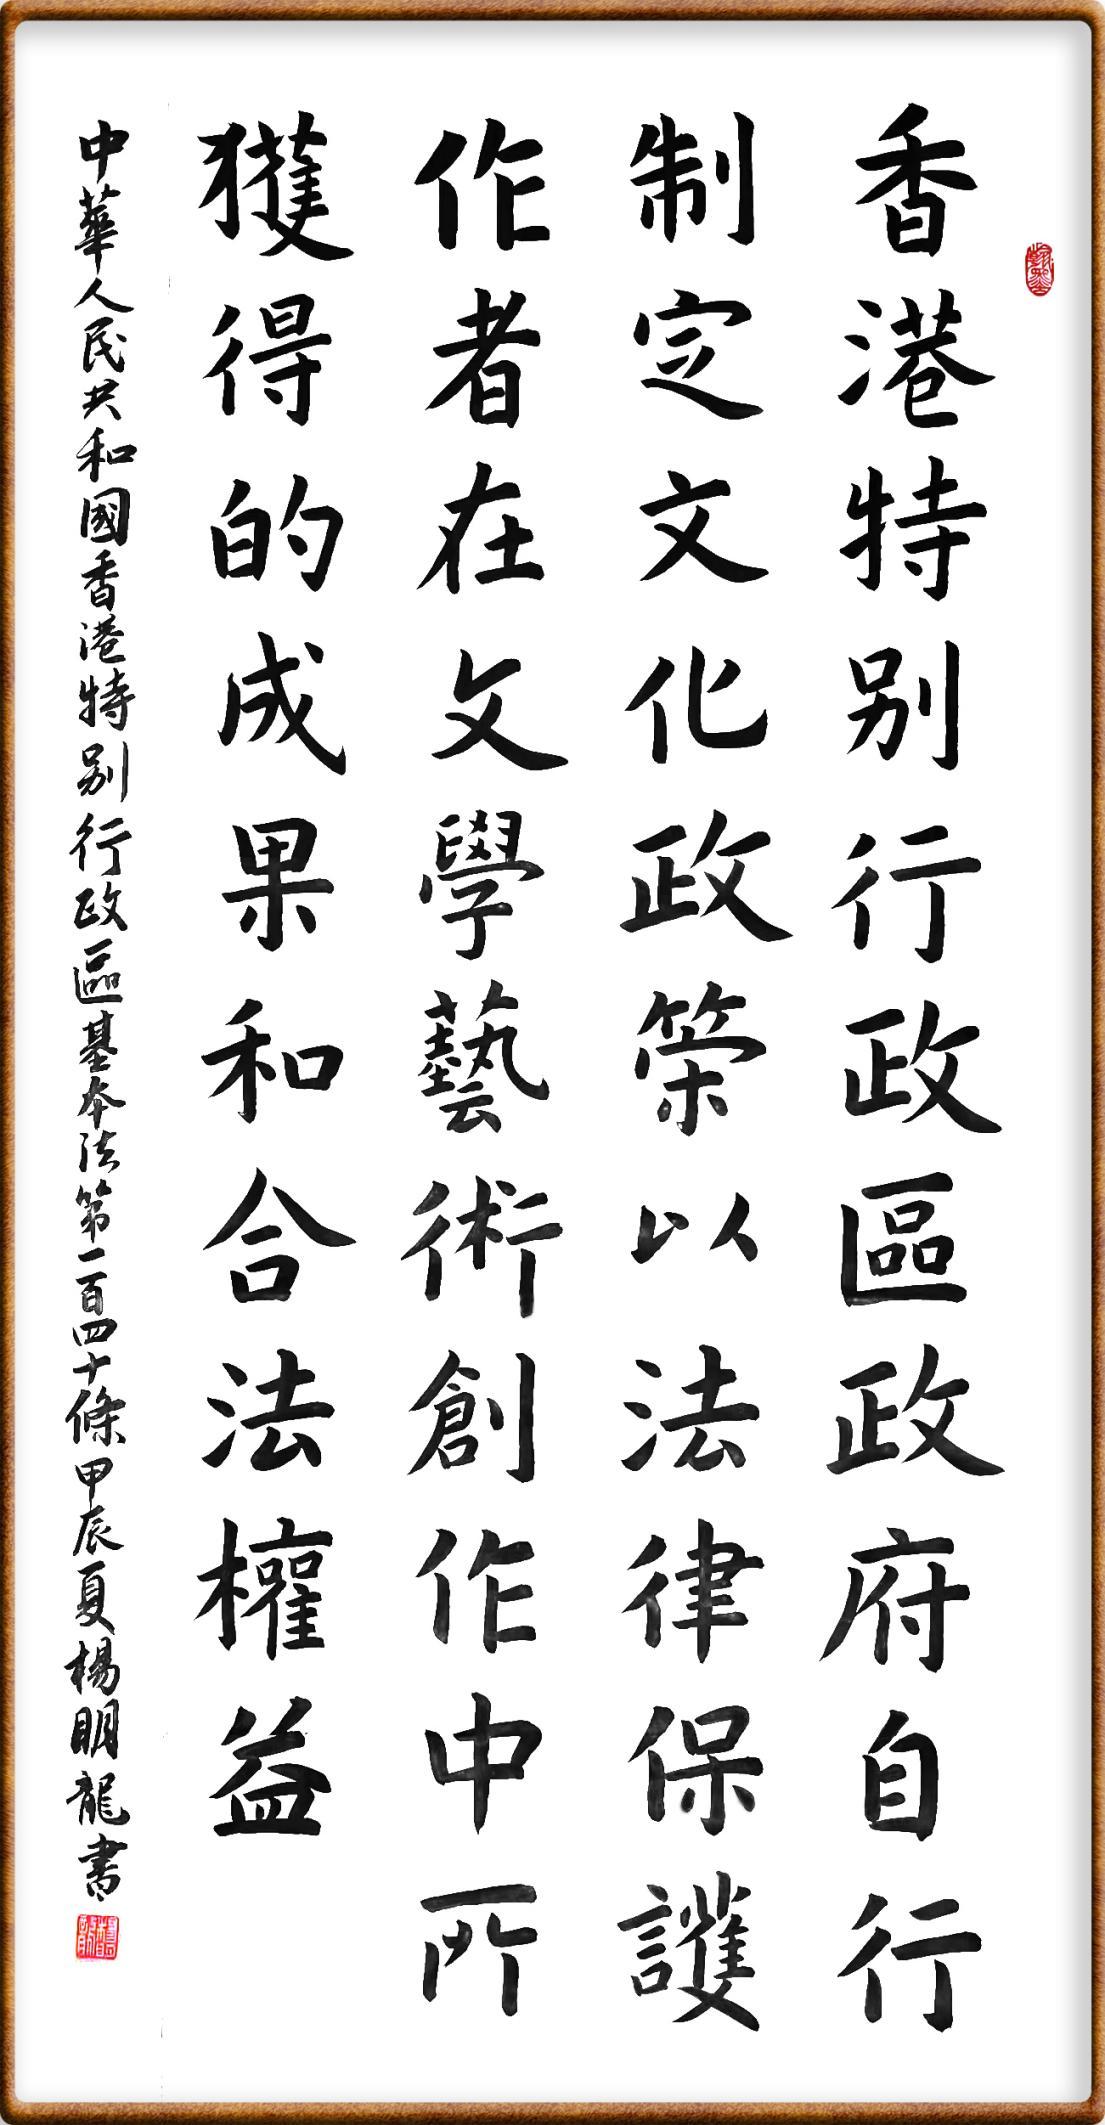 香港特别行政區政府自行
制定文化政策以法律保護
作者在文學藝術創作中所
獲得的成果和合法權益
中華人民共和國香港特别行政區基本法第一百四十條甲辰夏楊明龍書